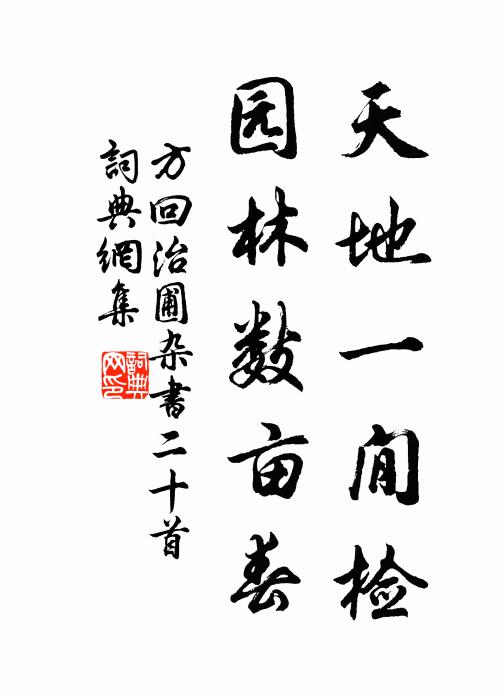 天地一闲检
园林数亩春
方回治圃杂書二十首
詞典網集
詞典网印